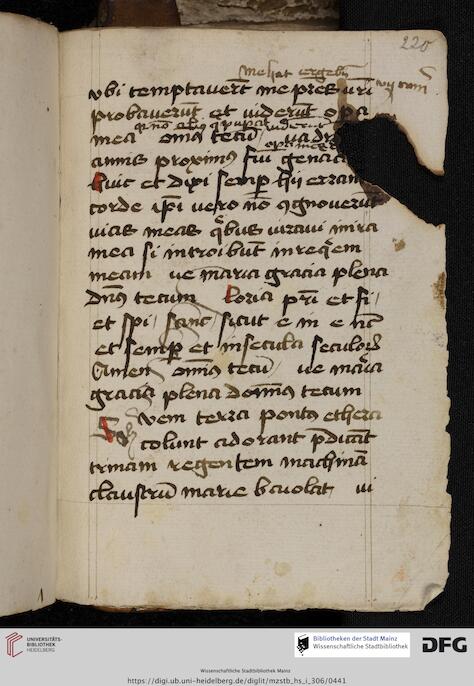 220
vbi temptauerūt me pres vri
probauerūt et viderūt opa
mea dn̄s tecū
annis proximꝰ fui
huic et dixi semp hij erran
corde ip̄i vero nō ꝯgnouerūt
vias meas qͥbus iuraui in ira
mea si introibūt in reqͥem
meam ue maria gracia plena
dn̄s tecum loria pr̄i et fi
et sp̄i sanc sicut e in e nc̄
et semp et in secula seculoꝝ
Amen dn̄s tecū ue mar̄ia
gracia plena domin̄s tecum
vem terra pontꝰ ethera
colunt adorant p̄dicāt
trinam regentem machinā
claustrū marie baiolat
UNIVERSITÄTS-
BIBLIOTHEK
HEIDELBERG
Bibliotheken der Stadt Mainz
Wissenschaftliche Stadtbibliothek
DFG
Wissenschaftliche Stadtbibliothek Mainz
https://digi.ub.uni-heidelberg.de/diglit/mzstb_hs_i_306/0441